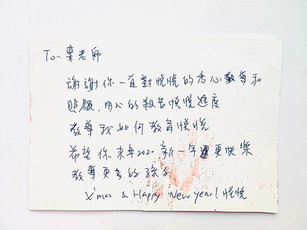 To- 葉老師
謝謝你一直對悅悅的悉心教導和
照顧、用心的報告悅悅進度
教導我如何教育悅悅
希望你來年2020新一年更快樂
教導更多的孩子
X'mas & Happy New Year! 悅悅